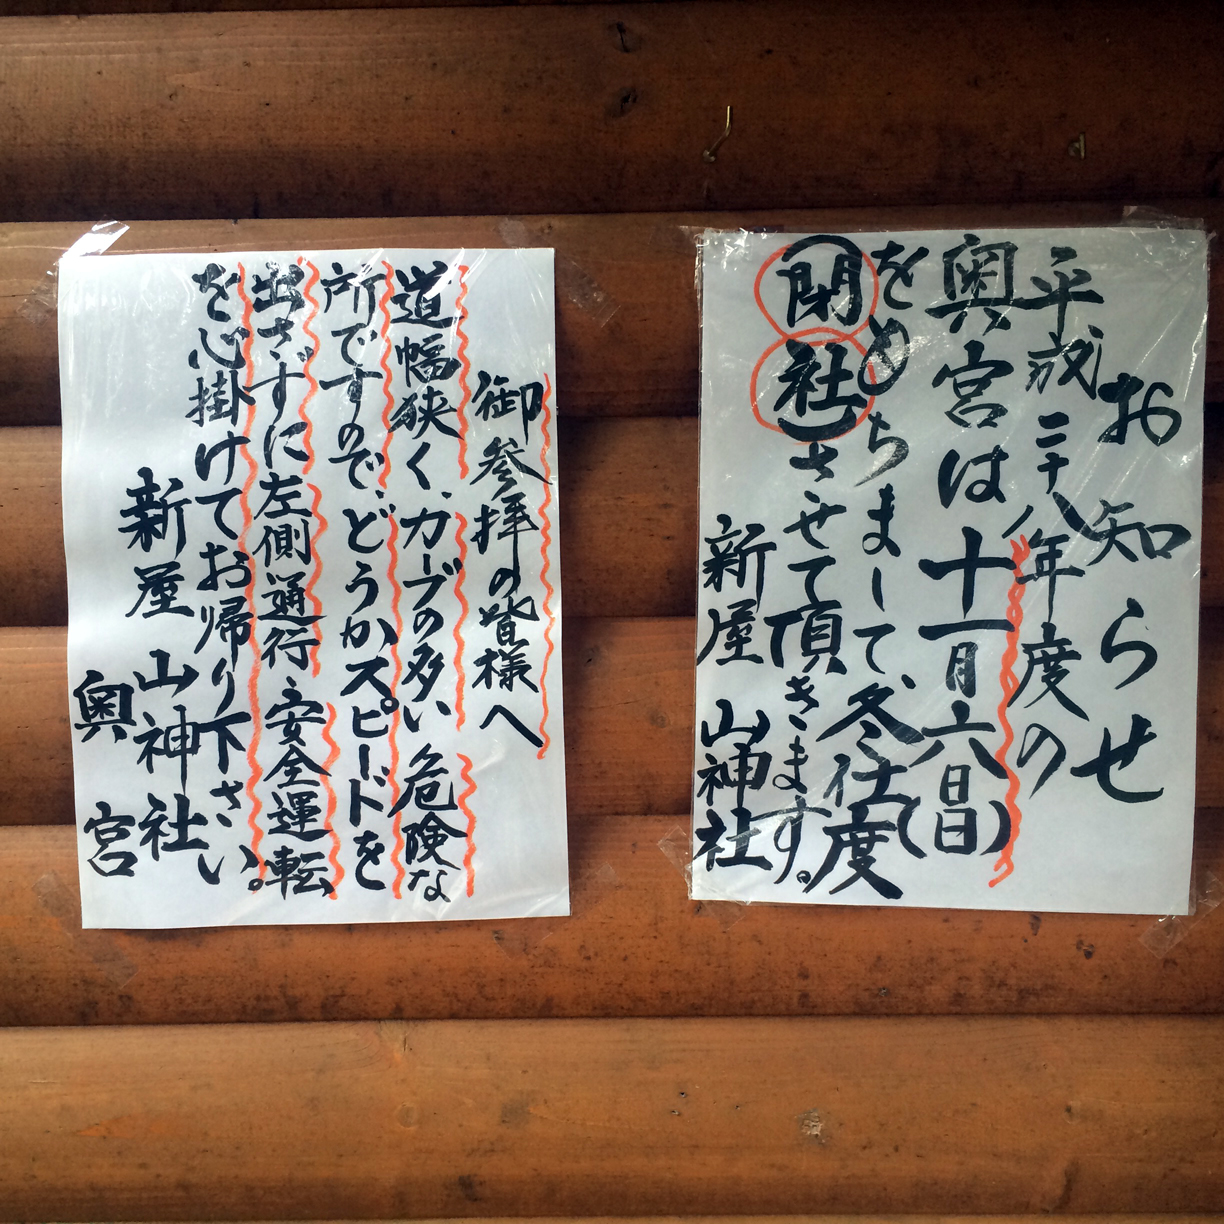 お知らせ
平成二十八年度の
奥宮は十一月六日(日)
をめちまして、冬仕度
閉社させて頂きます。
新屋山神社
御参拝の皆様へ
道幅狭く、カーブの多い危険な
所ですので、どうかスピードを
出さずに左側通行、安全運転
を心掛けてお帰り下さい。
新屋山神社
奥宮